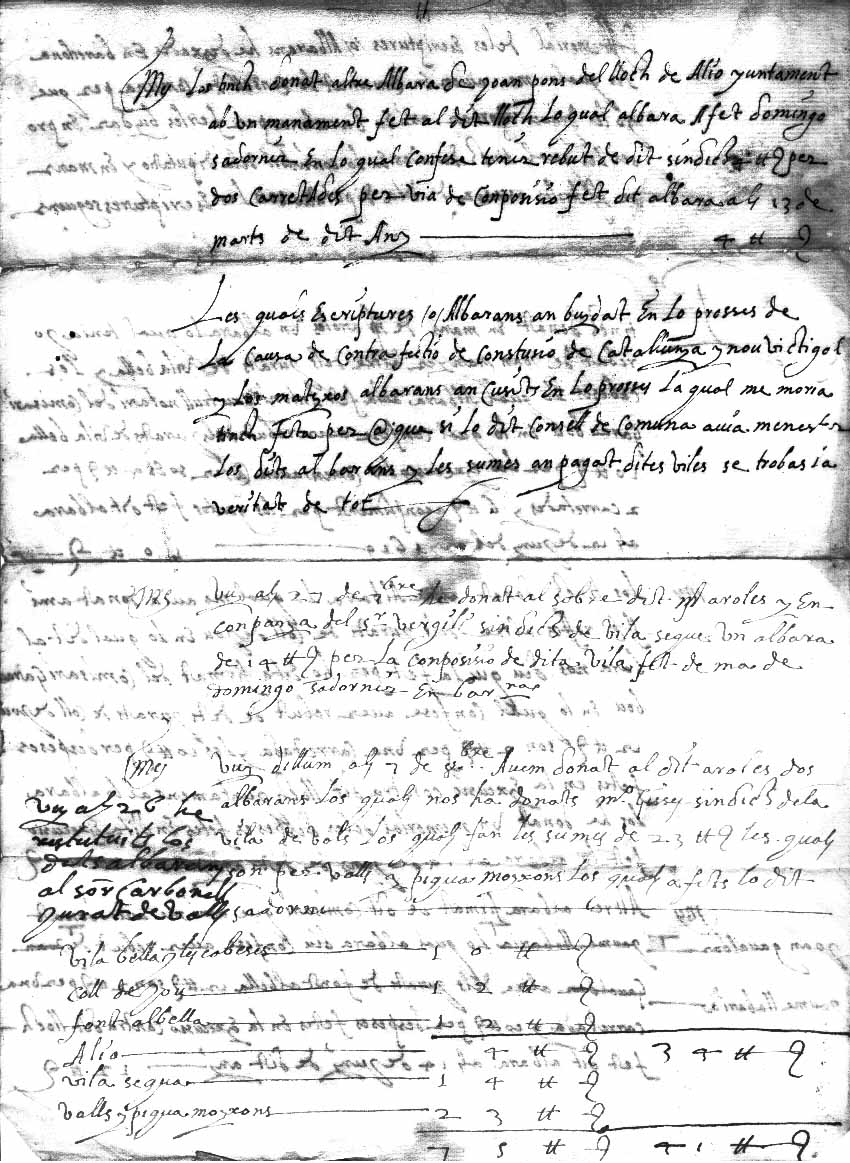 Mes los tinch donat altre Albara de yoan pons del lloch de Alio yuntament
ab un manament fet al dit lloch lo qual albara A fet domingo
sadorniz En lo qual confesa teniz rebut de dit sindich 4 tt per
dos Carretades per via de Conposisio fet dit albara als 13 de
marts de dit Any 4 tt
Les quals Escriptures /o/ Albarans an buydat En lo prosses de
La Causa de Contra fectio de Constusio de Catallunya y nou victigol
y los matexos albarans an Cusits En lo prosses La qual me moria
tinch feta per que si lo dit Consell de Comuna avia menester
los dits al barans y les sumes an pagat dites viles se trobas la
veritat de tot
Mes vuy als 27 de 7bre he donat al sobre dit aroles y En
conpanya del sr vergili sindich de vila seque un albara
de 14 tt per la conposisio de dita vila fet de ma de
domingo sadorniz En barna
Mes vuy dillum als 7 de bre Avem donat al dit aroles dos
albarans los quals nos ha donats sindich dela
vila de vols los quals fan les sumes de 23 tt les quals
son per valls y pigua moyxons los quals a fets lo dit
sadorni
vuy als 26 he
restituits los
dits albarans
al sor Carbonell
yurat de valls
vila bella y 1 0 tt
coll de you 1 2 tt
font albella 1 2 tt
Alio 4 tt 3 4 tt
vila sequa 1 4 tt
valls y pigua moyxons 2 3 tt
7 5 tt 4 1 tt